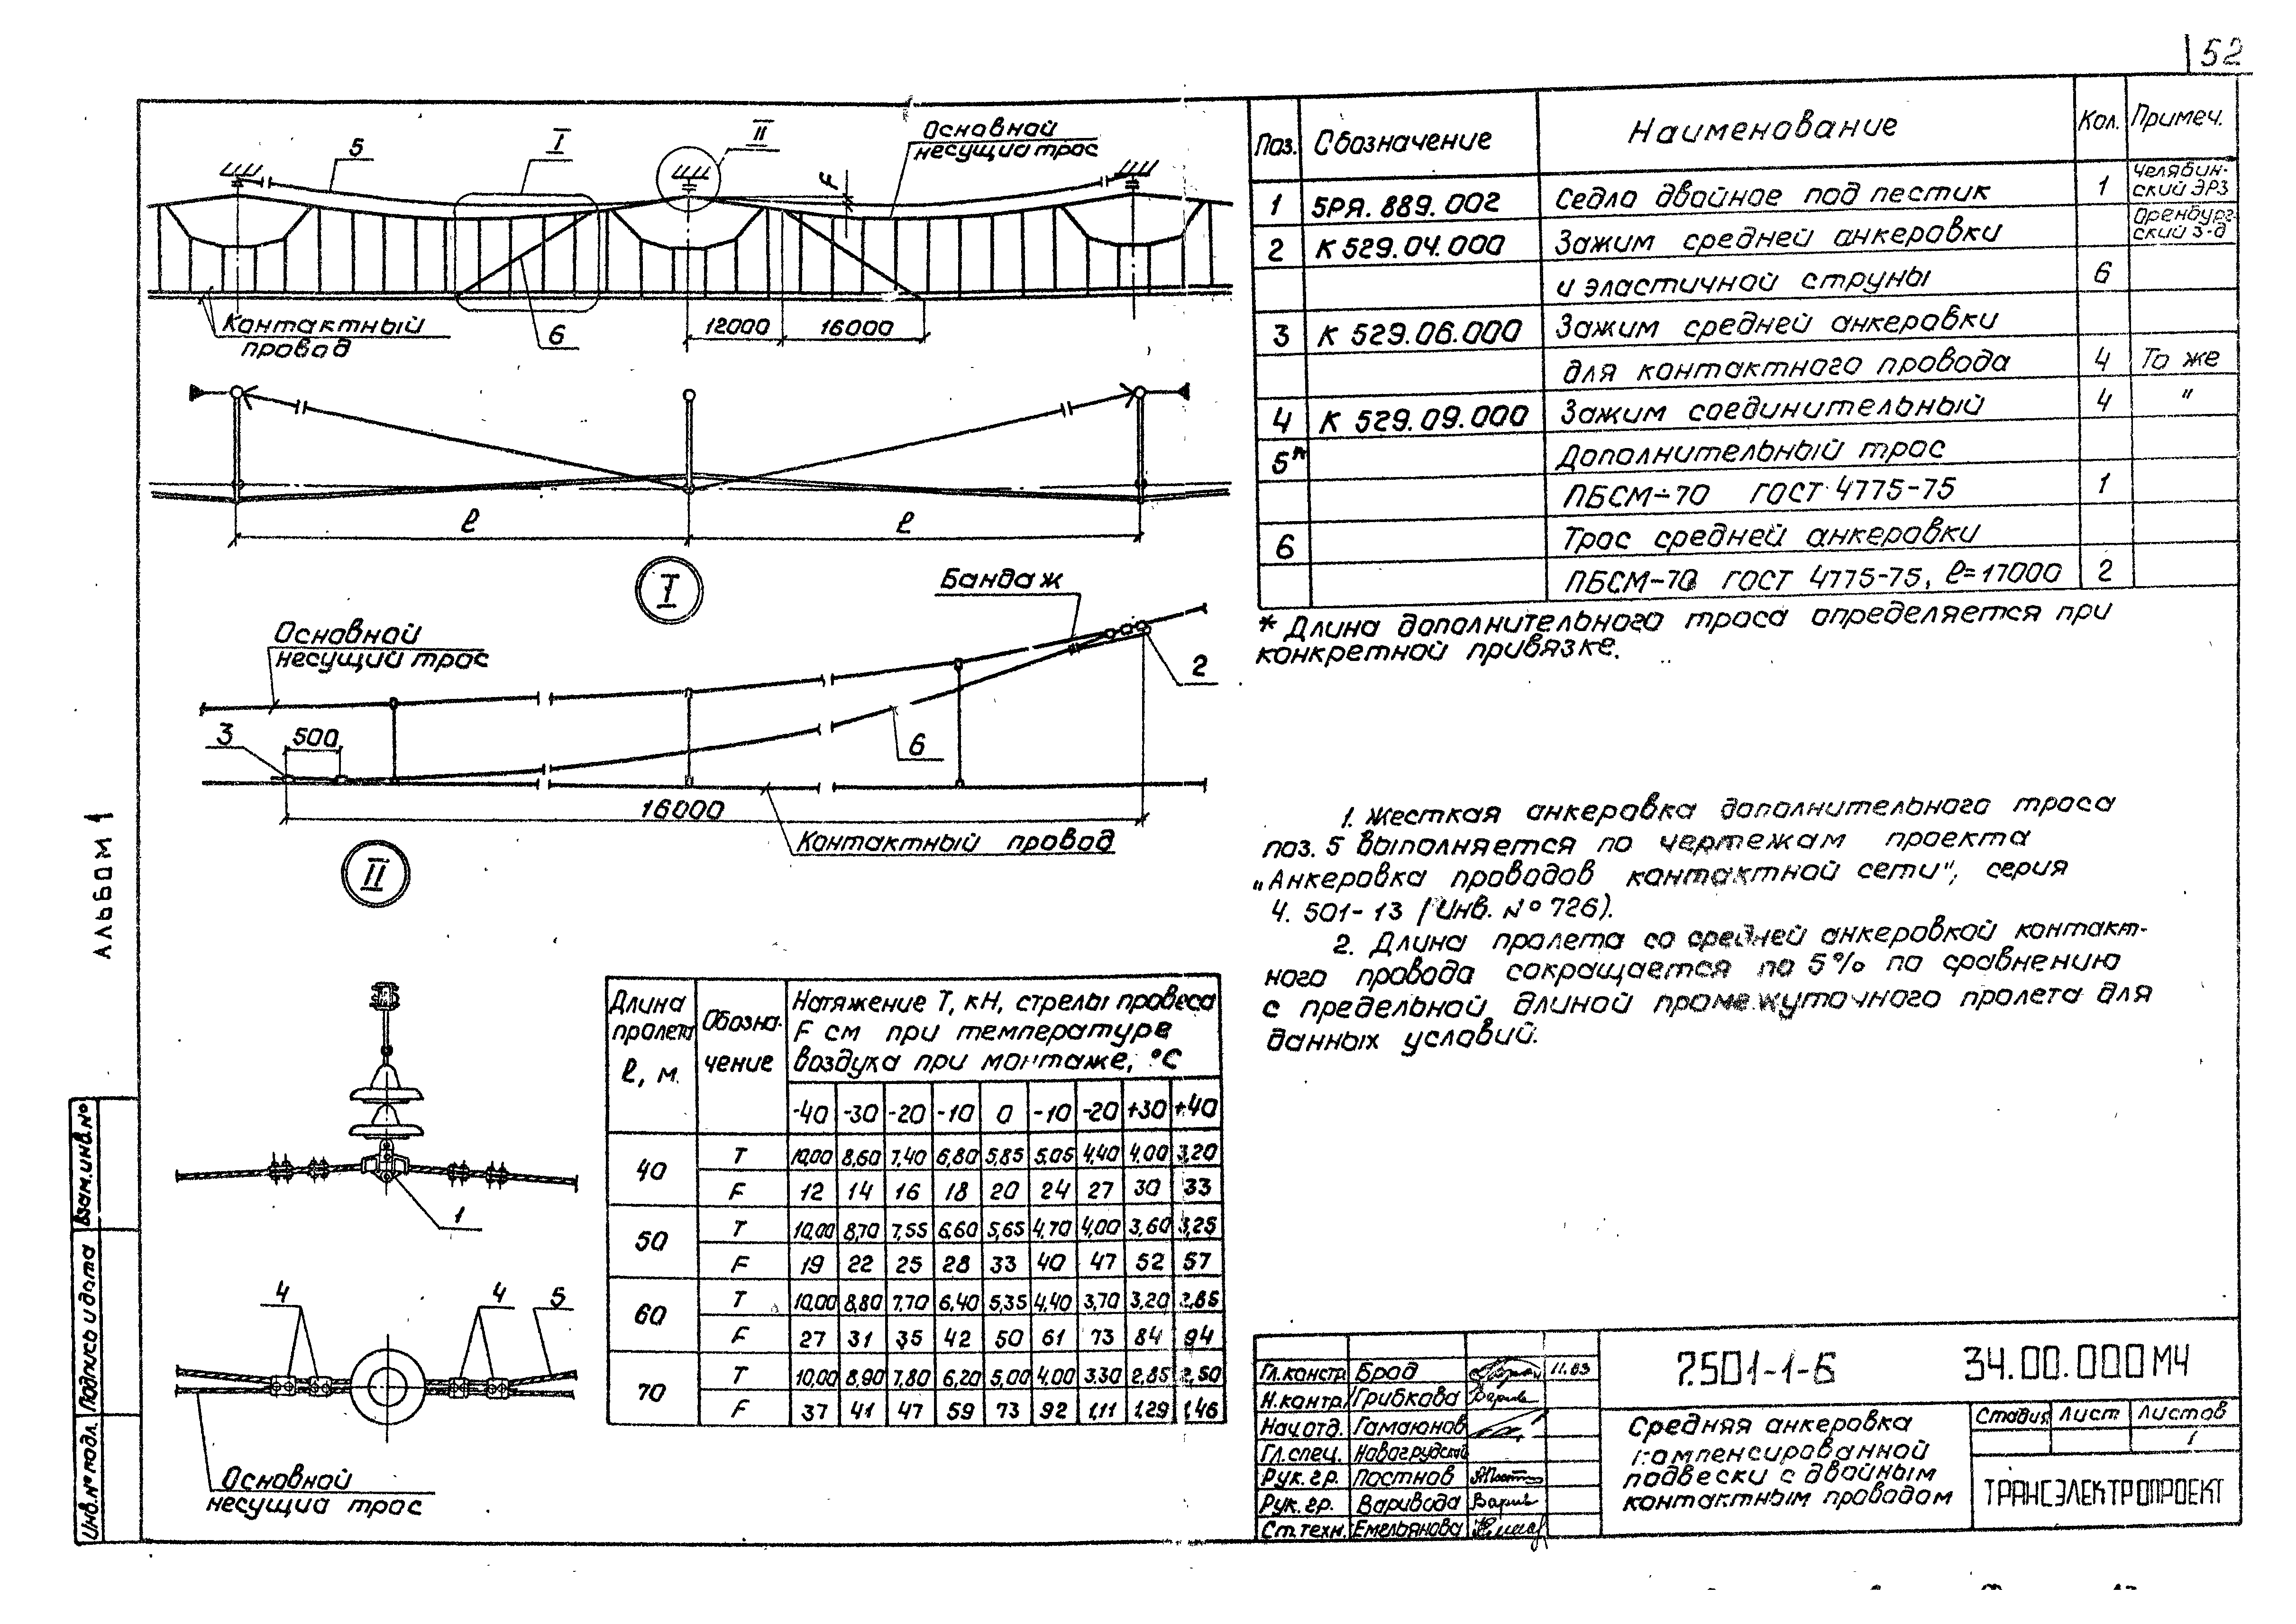 52
5
I
II
Основной
несущий трос
F
Контактный
провод
6
12000
16000
ℓ
ℓ
I
Бандаж
Основной
несущий трос
2
3
500
6
16000
Контактный провод
II
1
4
4
5
Основной
несущий трос
Поз. Обозначение Наименование Кол. Примеч.
1 5РЯ.889.002 Седло двойное под пестик 1 Челябин-
ский ЭРЗ
2 К 529.04.000 Зажим средней анкеровки Оренбург-
ский з-д
и эластичной струны 6
3 К 529.06.000 Зажим средней анкеровки
для контактного провода 4 То же
4 К 529.09.000 Зажим соединительный 4 "
5* Дополнительный трос
ПБСМ-70 ГОСТ 4775-75 1
6 Трос средней анкеровки
ПБСМ-70 ГОСТ 4775-75, ℓ=17000 2
* Длина дополнительного троса определяется при
конкретной привязке.
1. Жесткая анкеровка дополнительного троса
поз. 5 выполняется по чертежам проекта
„Анкеровка проводов контактной сети", серия
4.501-13 (Инв. № 726).
2. Длина пролета со средней анкеровкой контакт-
ного провода сокращается на 5% по сравнению
с предельной длиной промежуточного пролета для
данных условий.
Длина
пролета
ℓ, м.
Обозна-
чение
Натяжение Т, кН, стрелы провеса
F см при температуре
воздуха при монтаже, °С
-40 -30 -20 -10 0 -10 -20 +30 +40
40 Т 10,00 8,60 7,40 6,80 5,85 5,05 4,40 4,00 3,20
F 12 14 16 18 20 24 27 30 33
50 Т 10,00 8,70 7,55 6,60 5,65 4,70 4,00 3,60 3,25
F 19 22 25 28 33 40 47 52 57
60 Т 10,00 8,80 7,70 6,40 5,35 4,40 3,70 3,20 2,85
F 27 31 35 42 50 61 73 84 94
70 Т 10,00 8,90 7,80 6,20 5,00 4,00 3,30 2,85 2,50
F 37 41 47 59 73 92 1,11 1,29 1,46
АЛЬБОМ 1
Взам.инв.№
Подпись и дата
Инв.№ подл.
Гл.констр. Брод 11.83
Н.контр. Грибкова
Нач.отд. Гамаюнов
Гл.спец. Новогрудский
Рук.гр. Постнов
Рук.гр. Варивода
Ст.техн. Емельянова
7.501-1-6 34.00.000МЧ
Средняя анкеровка
компенсированной
подвески с двойным
контактным проводом
Стадия Лист Листов
1
ТРАНСЭЛЕКТРОПРОЕКТ